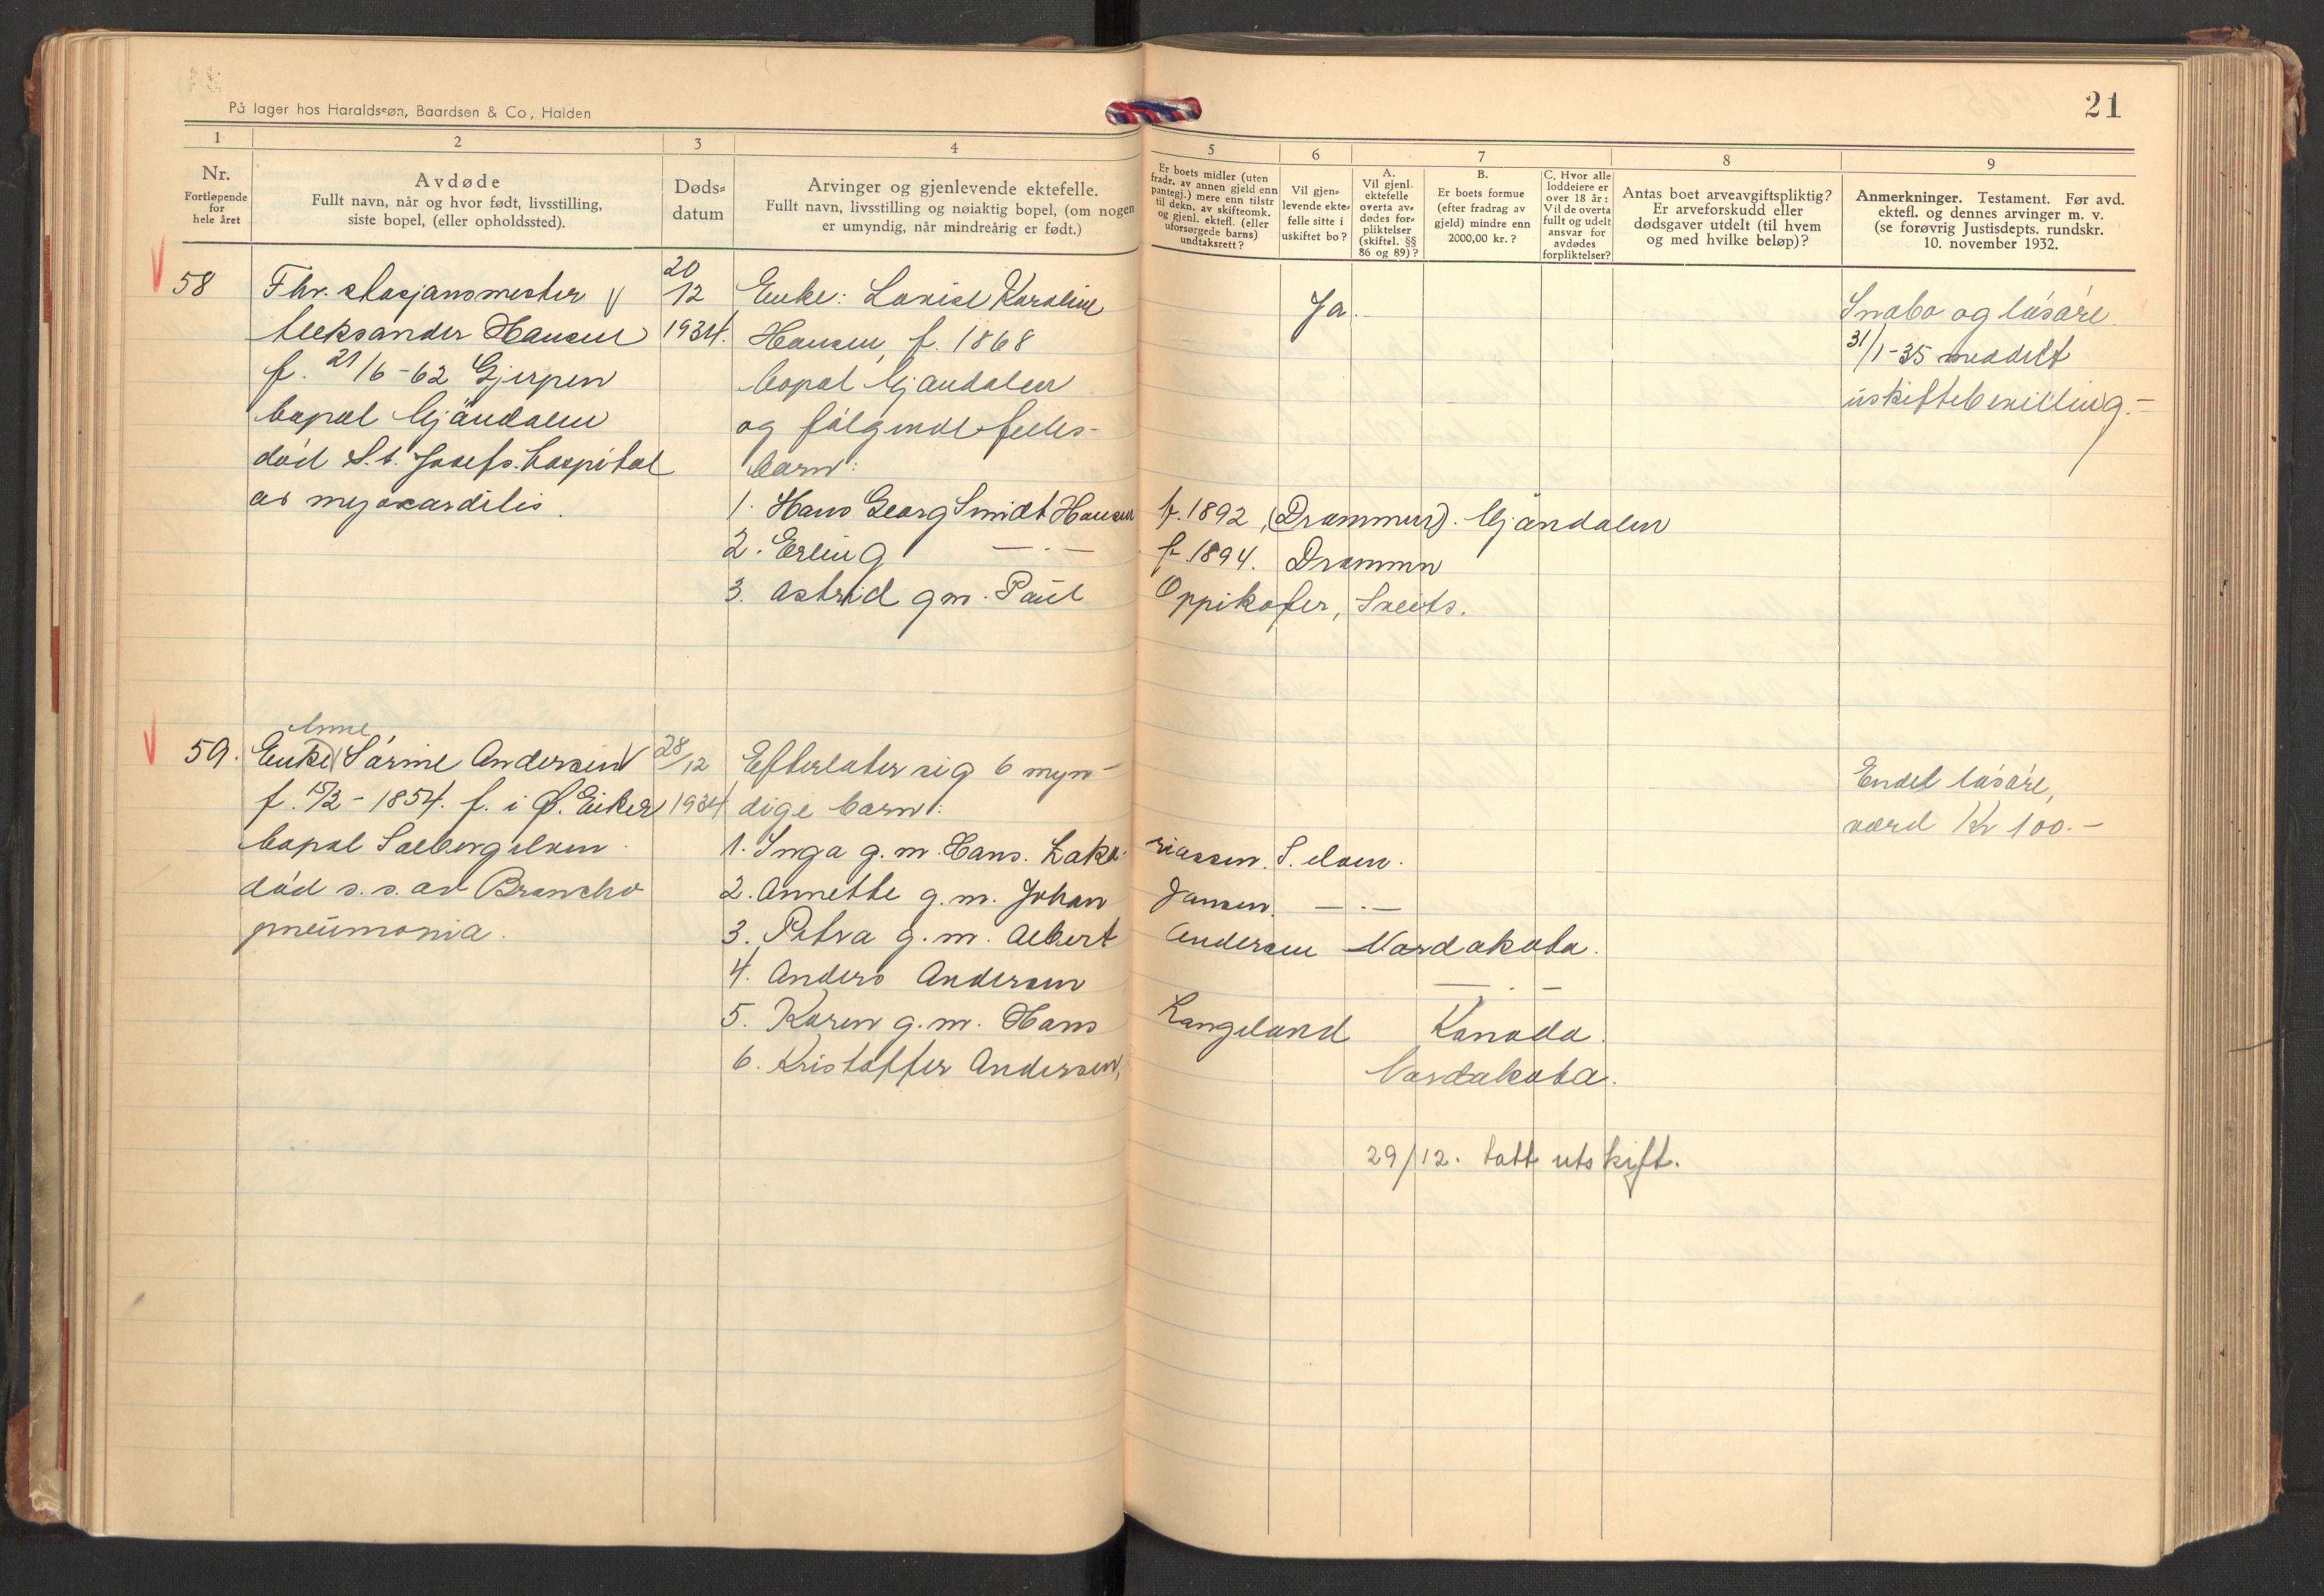 På lager hos Haraldssøn, Baardsen & Co, Halden
21
1
2
3
4
5
6
7
8
9
Nr.
Fortløpende
for
hele året
Avdøde
Fullt navn, når og hvor født, livsstilling,
siste bopel, (eller opholdssted).
Døds-
datum
Arvinger og gjenlevende ektefelle.
Fullt navn, livsstilling og nøiaktig bopel, (om nogen
er umyndig, når mindreårig er født.)
Er boets midler (uten
fradr. av annen gjeld enn
pantegj.) mere enn tilstr
til dekn. av skifteomk.
og gjenl. ektefl. (eller
uforsørgede barns)
undtaksrett?
Vil gjen-
levende ekte-
felle sitte i
uskiftet bo?
A.
Vil gjenl.
ektefelle
overta av-
dødes for-
pliktelser
(skiftel. §§
86 og 89)?
B.
Er boets formue
(efter fradrag av
gjeld) mindre enn
2000,00 kr.?
C. Hvor alle
loddeiere er
over 18 år:
Vil de overta
fullt og udelt
ansvar for
avdødes
forpliktelser?
Antas boet arveavgiftspliktig?
Er arveforskudd eller
dødsgaver utdelt (til hvem
og med hvilke beløp)?
Anmerkninger. Testament. Før avd.
ektefl. og dennes arvinger m. v.
(se forøvrig Justisdepts. rundskr.
10. november 1932.
58 Fhv. stasjonsmester 20/12 Enke: Lovise Karoline Ja.
Aleksander Hansen 1934. Hansen, f. 1868
f. 21/6-62 Gjerpen bopæl Mjøndalen
bopæl Mjøndalen og følgende felles-
død St. Josefs. hospital barn:
av myokarditis.
1. Hans Georg Smidt Hansen f. 1892, (Drammen). Mjøndalen
2. Erling —·— f. 1894. Drammen
3. Astrid g.m. Paul Oppikofer, Sveits.
Småbo og løsøre.
31/1-35 meddelt
uskiftebevilling.-
Anne
59. Enke Sørine Andersen 28/12 Efterlater sig 6 myn-
f. 15/2-1854. f. i Ø. Eiker 1934 dige barn:
bopæl Solbergelven.
død s.s. av Broncho
pneumonia.
1. Inga g.m. Hans. Zaka-riassen. S.elven.
2. Annette g.m. Johan Jansen. —·—
3. Petra g.m. Albert Andersen Nordakota.
4. Anders Andersen —·—
5. Karen g.m. Hans Langeland Kanada.
6. Kristoffer Andersen, Nordakota.
Endel løsøre,
værd Kr 100.-
29/12. tatt utskift.